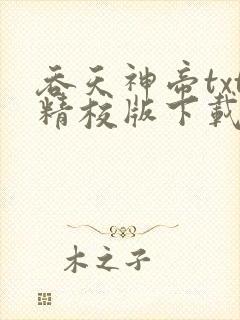 吞天神帝txt
精校版下載
木之子